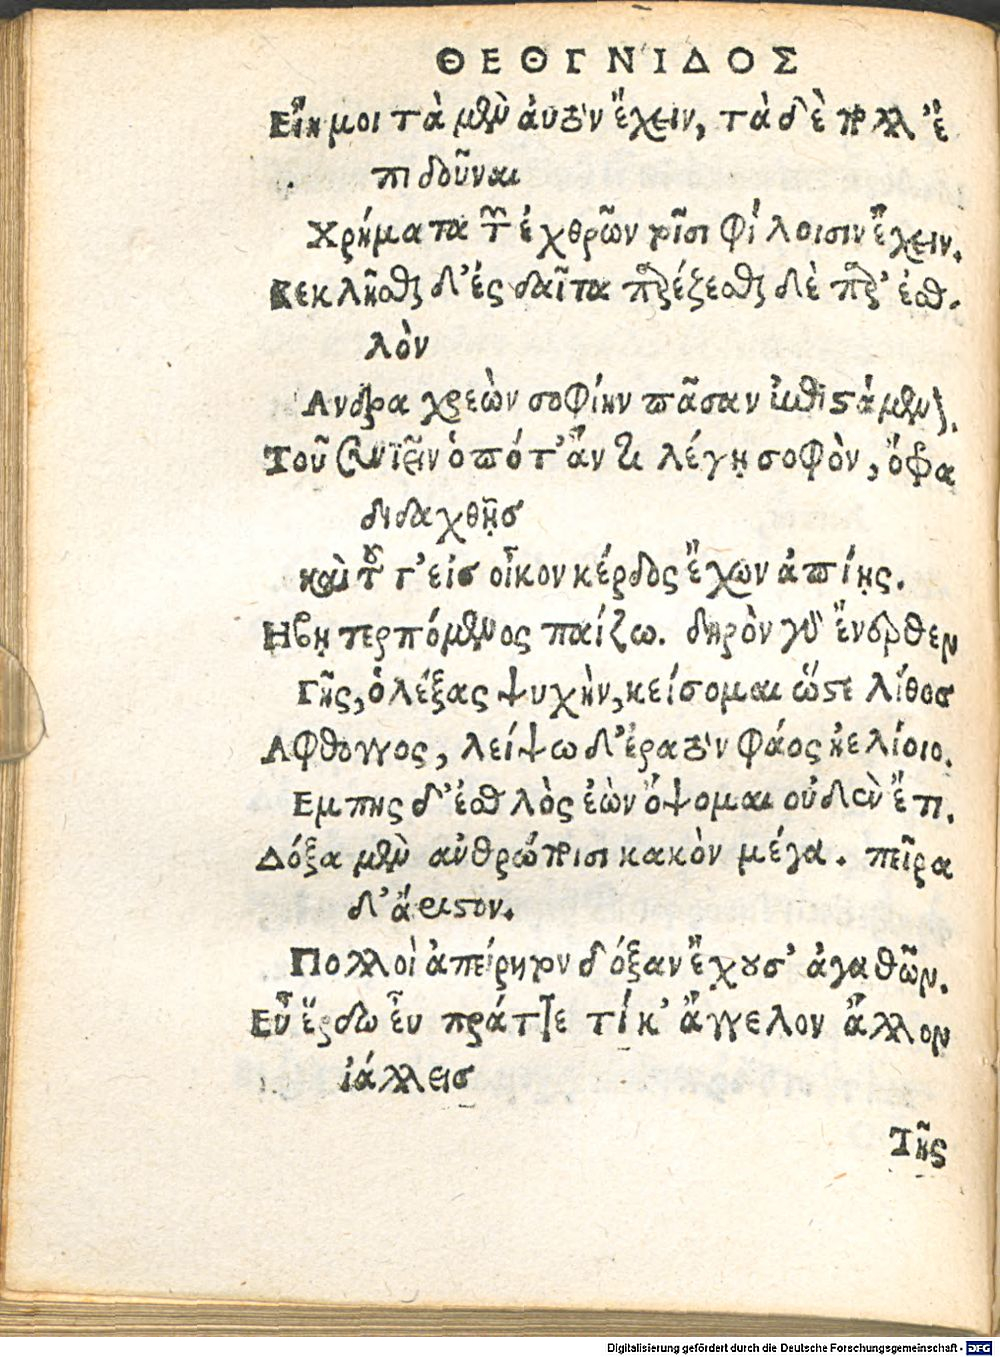 ΘΕΟΓΝΙΔΟΣ
Εἴη μοι τὰ μὲν αὐτὸν ἔχειν, τὰ δὲ πολλ' ἐ
πιδοῦναι
Χρήματα τῶν ἐχθρῶν τοῖσι φίλοισιν ἔχειν.
Κεκλῆσθαι δ' ἐς δαῖτα παρέζεσθαι δὲ παρ' ἐσθ-
λὸν
Ανδρα χρεὼν σοφίην πᾶσαν ἐπιστάμενον.
Τοῦ συνιεῖν ὁπότ' ἄν τι λέγῃ σοφὸν, ὄφρα
διδαχθῇς
καὶ τοῦτ' εἰς οἶκον κέρδος ἔχων ἀπίῃς.
Ηβῃ τερπόμενος παίζω. δηρὸν γὰρ ἔνερθεν
Γῆς, ὀλέξας ψυχὴν, κείσομαι ὥστε λίθος
Αφθογγος, λείψω δ' ἐρατὸν φάος ἠελίοιο.
Εμπης δ' ἐσθλὸς ἐὼν ὄψομαι οὐδὲν ἔτι.
Δόξα μὲν ἀνθρώποισι κακὸν μέγα. πεῖρα
δ' ἄριστον.
Πολλοὶ ἀπείρητον δόξαν ἔχουσ' ἀγαθῶν.
Εὖ ἔρδω εὖ πράττε τί κ' ἄγγελον ἄλλον
ἰάλλεις
Τῆς
Digitalisierung gefördert durch die Deutsche Forschungsgemeinschaft - DFG